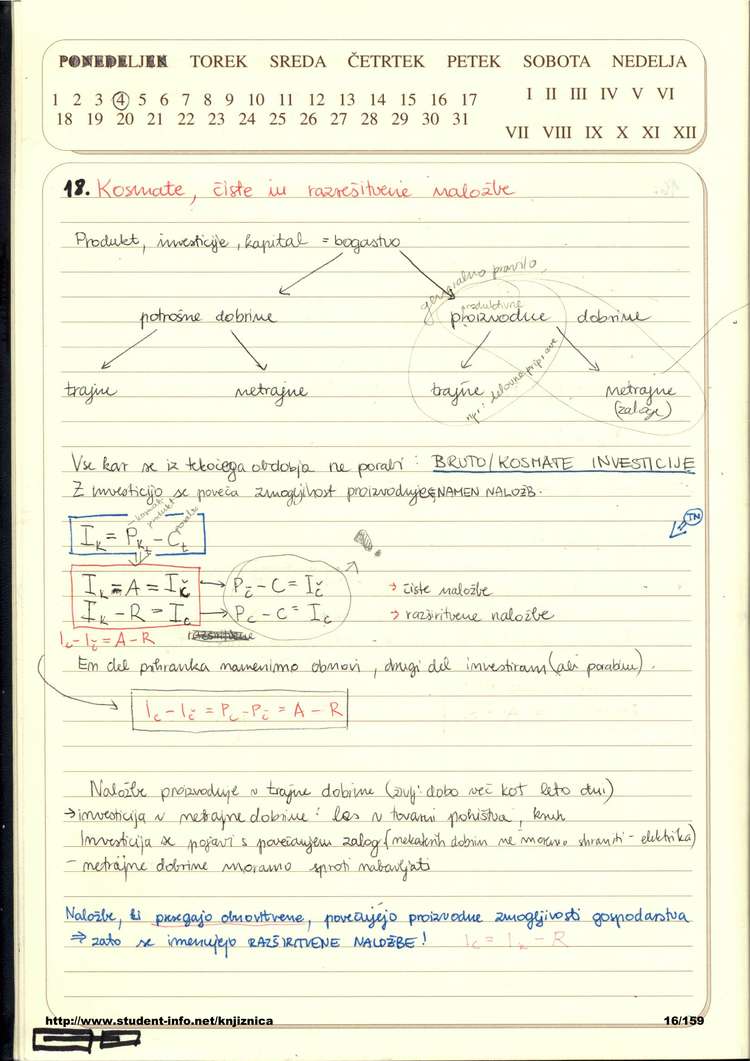 PONEDELJEK TOREK SREDA ČETRTEK PETEK SOBOTA NEDELJA
1 2 3 4 5 6 7 8 9 10 11 12 13 14 15 16 17
18 19 20 21 22 23 24 25 26 27 28 29 30 31
I II III IV V VI
VII VIII IX X XI XII
18. Kosmate, čiste in razrešitvene naložbe
Produkt, investicije, kapital = bogastvo
generalno pravilo
produktivne
potrošne dobrine proizvodne dobrine
npr.: delovne priprave
trajne netrajne trajne netrajne
(zaloge)
Vse kar se iz tekočega obdobja ne porabi: BRUTO/KOSMATE INVESTICIJE
Z investicijo se poveča zmogljivost proizvodnje NAMEN NALOŽB.
kosmati produkt
poraba
Ik = Pkt - Ct
TN
Ik - A = Ič → Pč - C = Ič → čiste naložbe
Ik - R = Ic → Pc - C = Ic → razširitvene naložbe
Ic - Ič = A - R
En del prihranka namenimo obnovi, drugi del investiram (ali porabim).
Ic - Ič = Pc - Pč = A - R
Naložbe proizvodnje v trajne dobrine (življ. dobo več kot leto dni)
→ investicija v netrajne dobrine: les v tovarni pohištva, kruh
Investicija se pojavi s povečanjem zalog (nekaterih dobrin ne moremo shraniti - elektrika)
- netrajne dobrine moramo sproti nabavljati
Naložbe, ki presegajo obnovitvene, povečujejo proizvodne zmogljivosti gospodarstva
⇒ zato se imenujejo RAZŠIRITVENE NALOŽBE! Ic = Ik - R
http://www.student-info.net/knjiznica 16/159